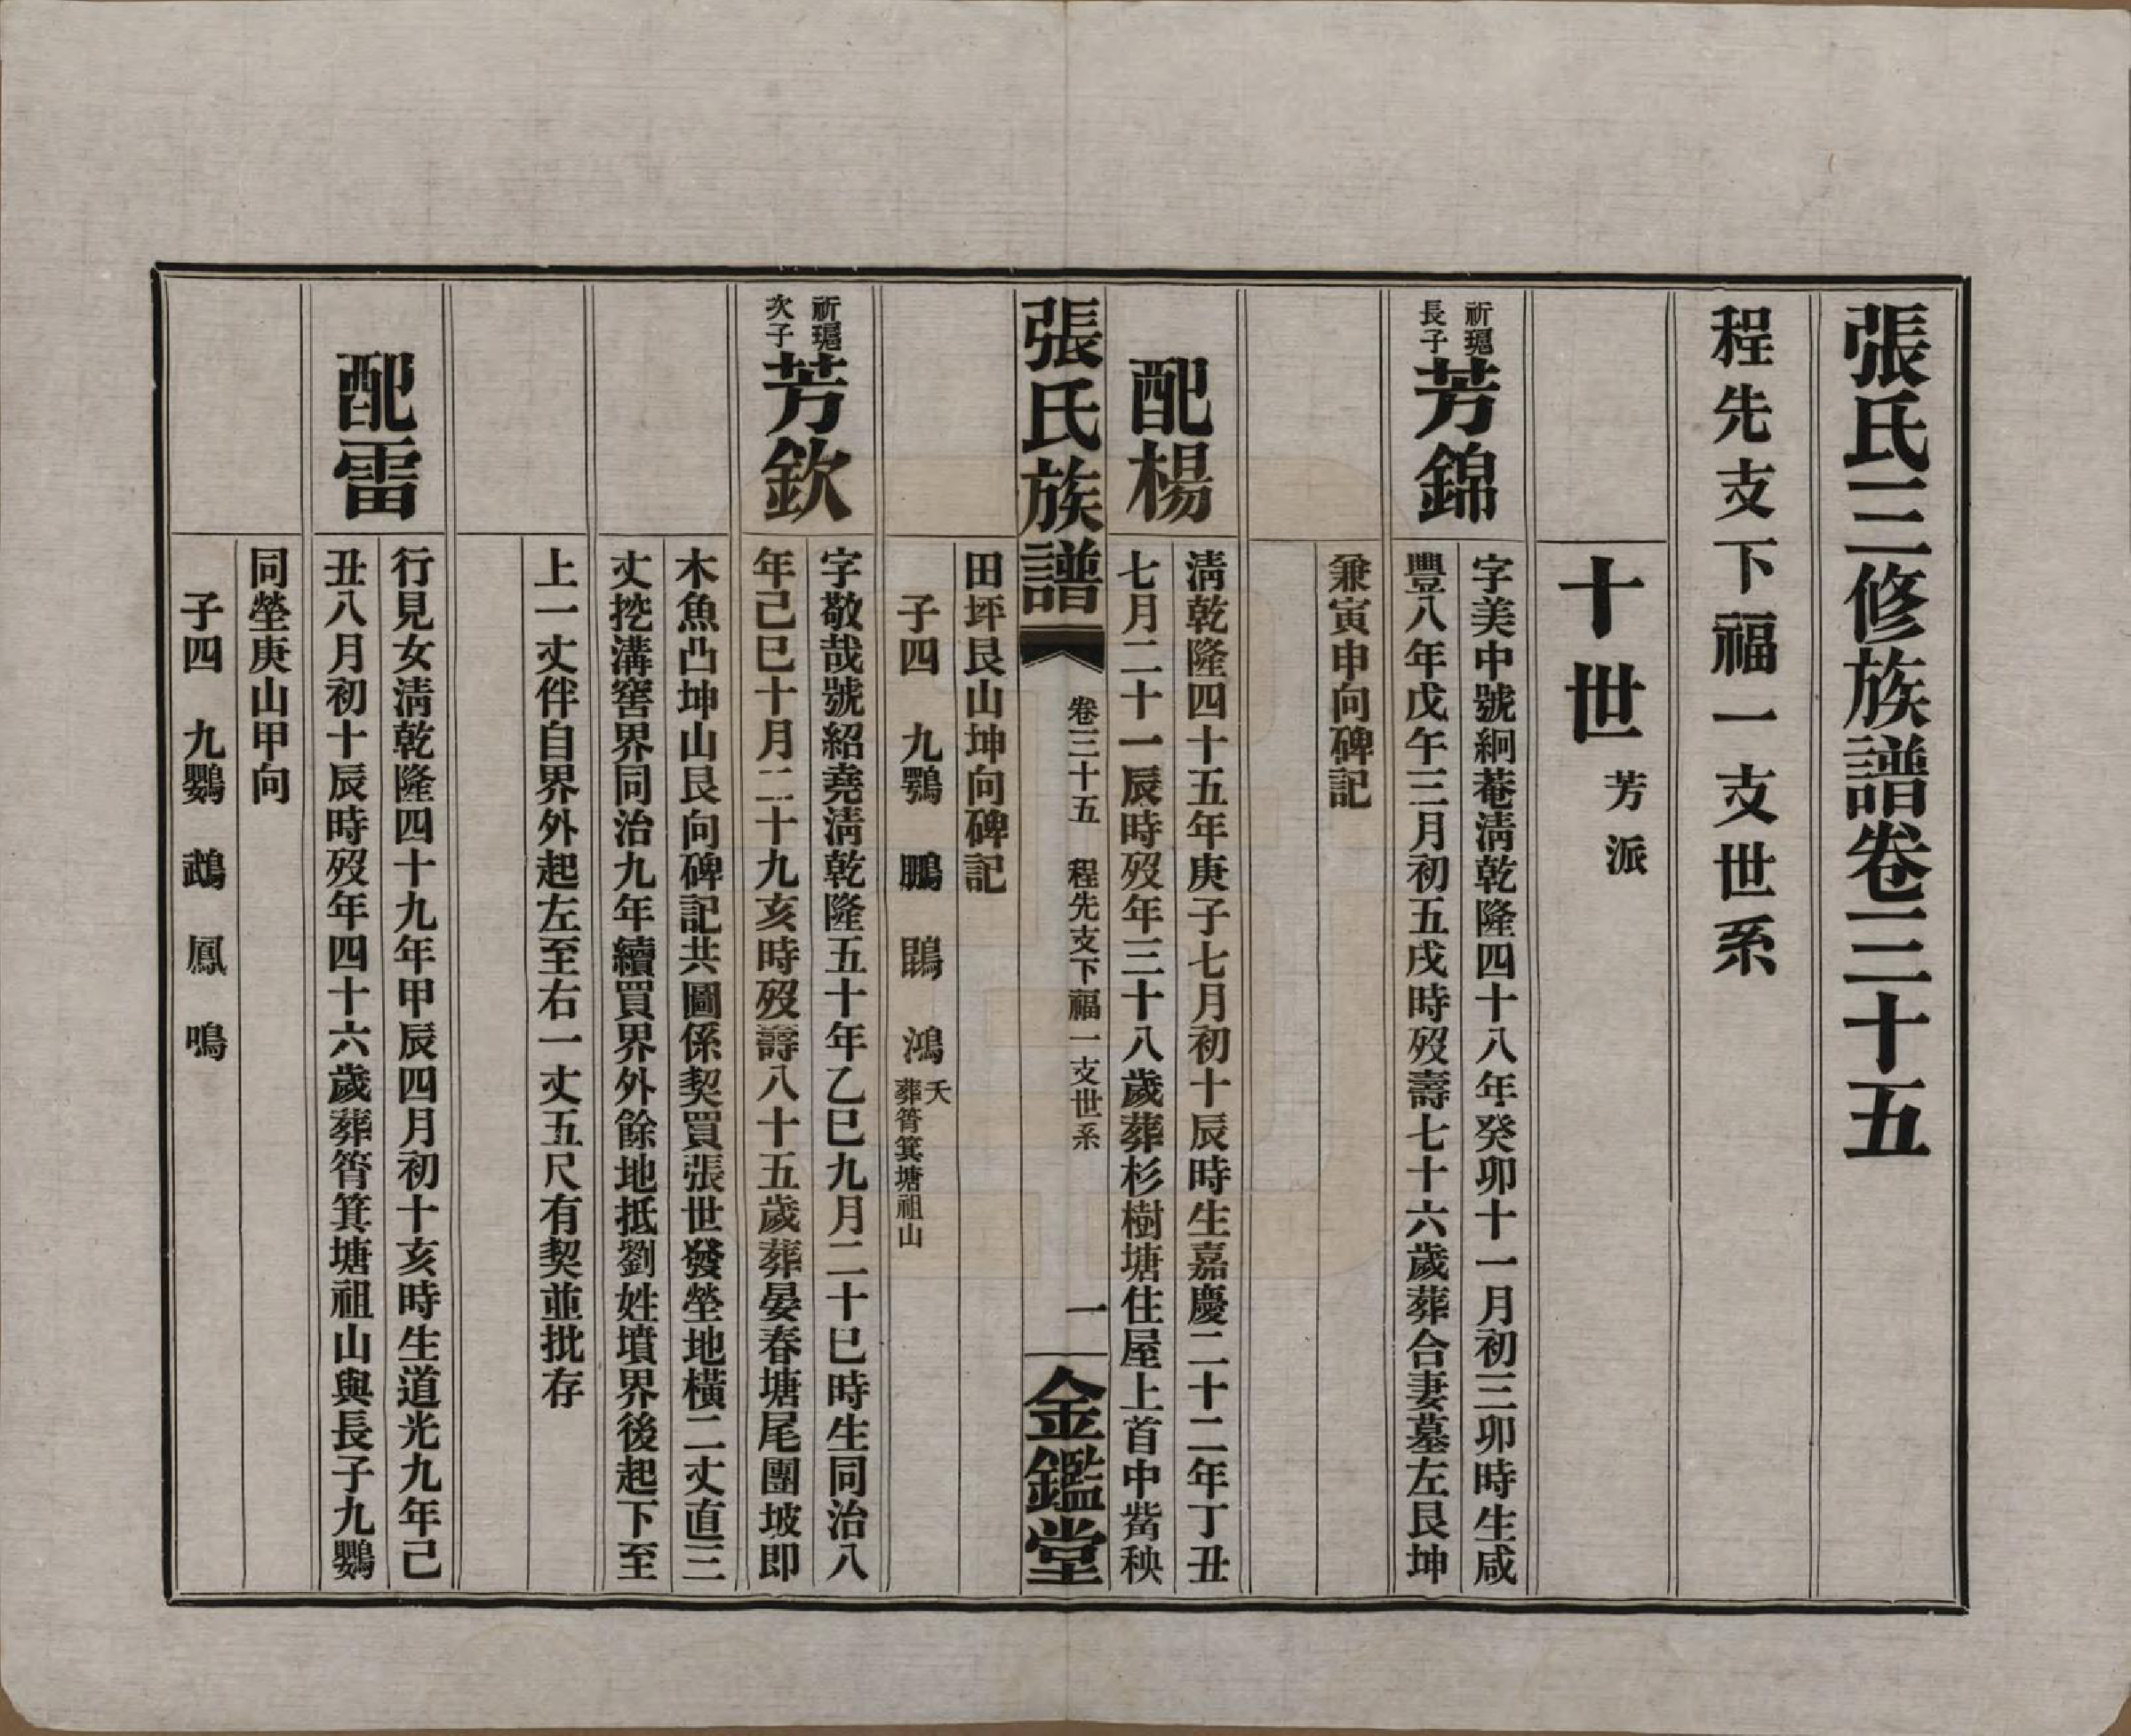 張氏三修族譜卷三十五
程先支下福一支世系
十世 芳派
祈琨
長子
芳錦
字美中號絅菴淸乾隆四十八年癸卯十一月初三卯時生咸
豐八年戊午三月初五戌時歿壽七十六歲葬合妻墓左艮坤
兼寅申向碑記
配楊
淸乾隆四十五年庚子七月初十辰時生嘉慶二十二年丁丑
七月二十一辰時歿年三十八歲葬杉樹塘住屋上首中嵛秧
張氏族譜
卷三十五 程先支下福一支世系
一
金鑑堂
田坪艮山坤向碑記
子四 九鶚 鵬 鵾 鴻 夭
葬筲箕塘祖山
祈琨
次子
芳欽
字敬哉號紹堯淸乾隆五十年乙巳九月二十巳時生同治八
年己巳十月二十九亥時歿壽八十五歲葬晏春塘尾團坡即
木魚凸坤山艮向碑記共圖係契買張世發塋地橫二丈直三
丈挖溝窖界同治九年續買界外餘地抵劉姓墳界後起下至
上一丈伴自界外起左至右一丈五尺有契並批存
配雷
行見女淸乾隆四十九年甲辰四月初十亥時生道光九年己
丑八月初十辰時歿年四十六歲葬筲箕塘祖山與長子九鸚
同塋庚山甲向
子四 九鸚 鵡 鳳 鳴